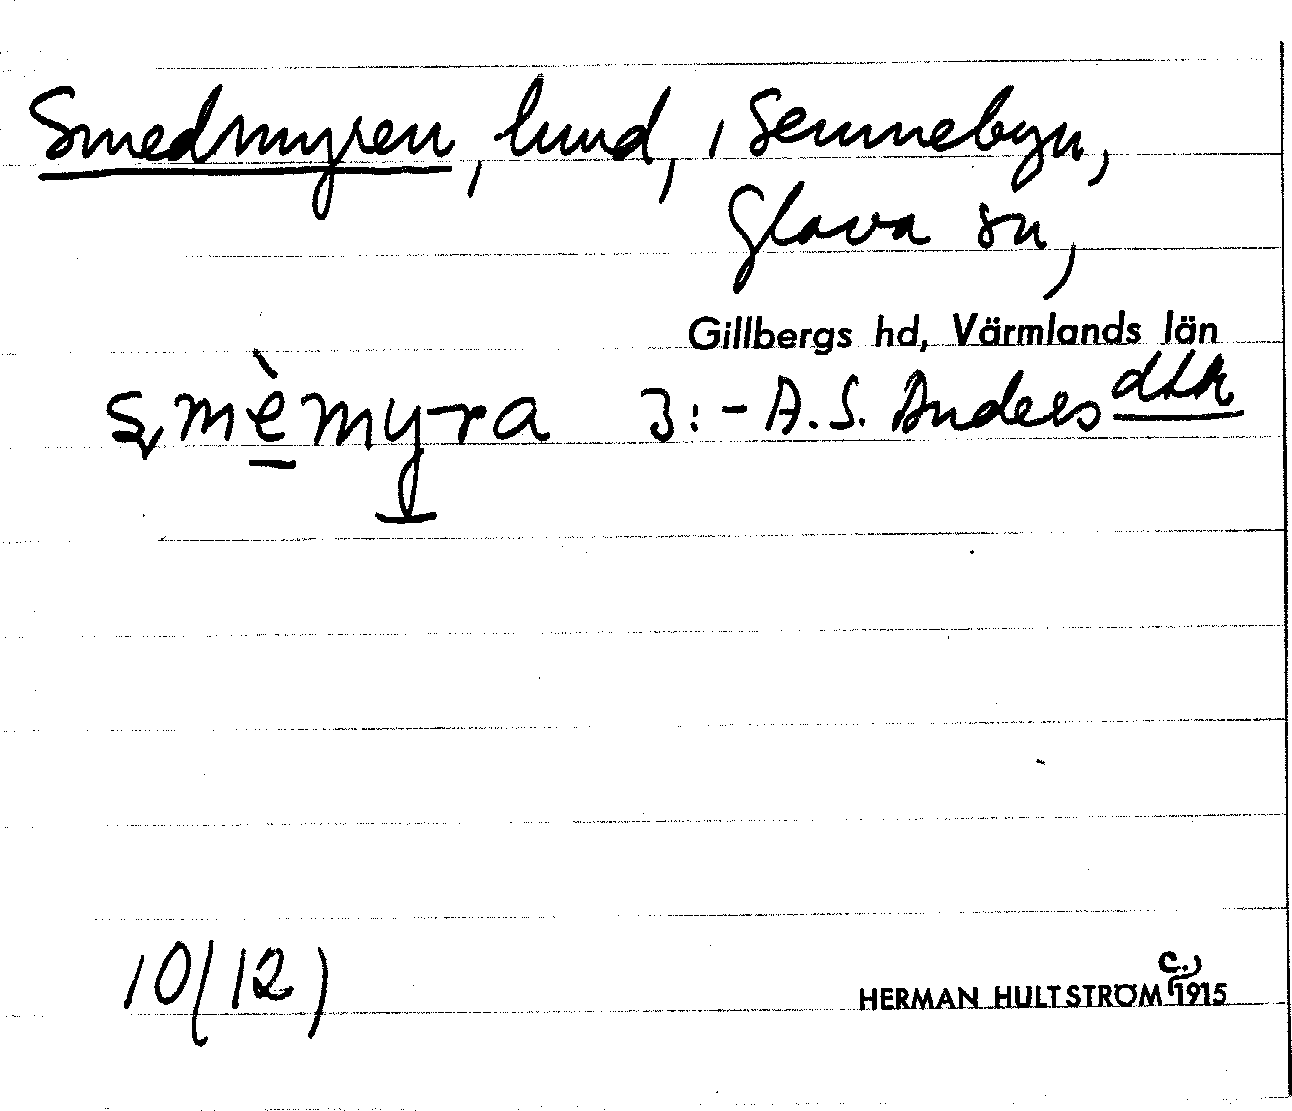 Smedmyren, lund, i Sennebyn,
Glava sn,
Gillbergs hd, Värmlands län
smèmyra 3:- A.S. Anders dtk
10(12)
HERMAN HULTSTRÖM c. 1915